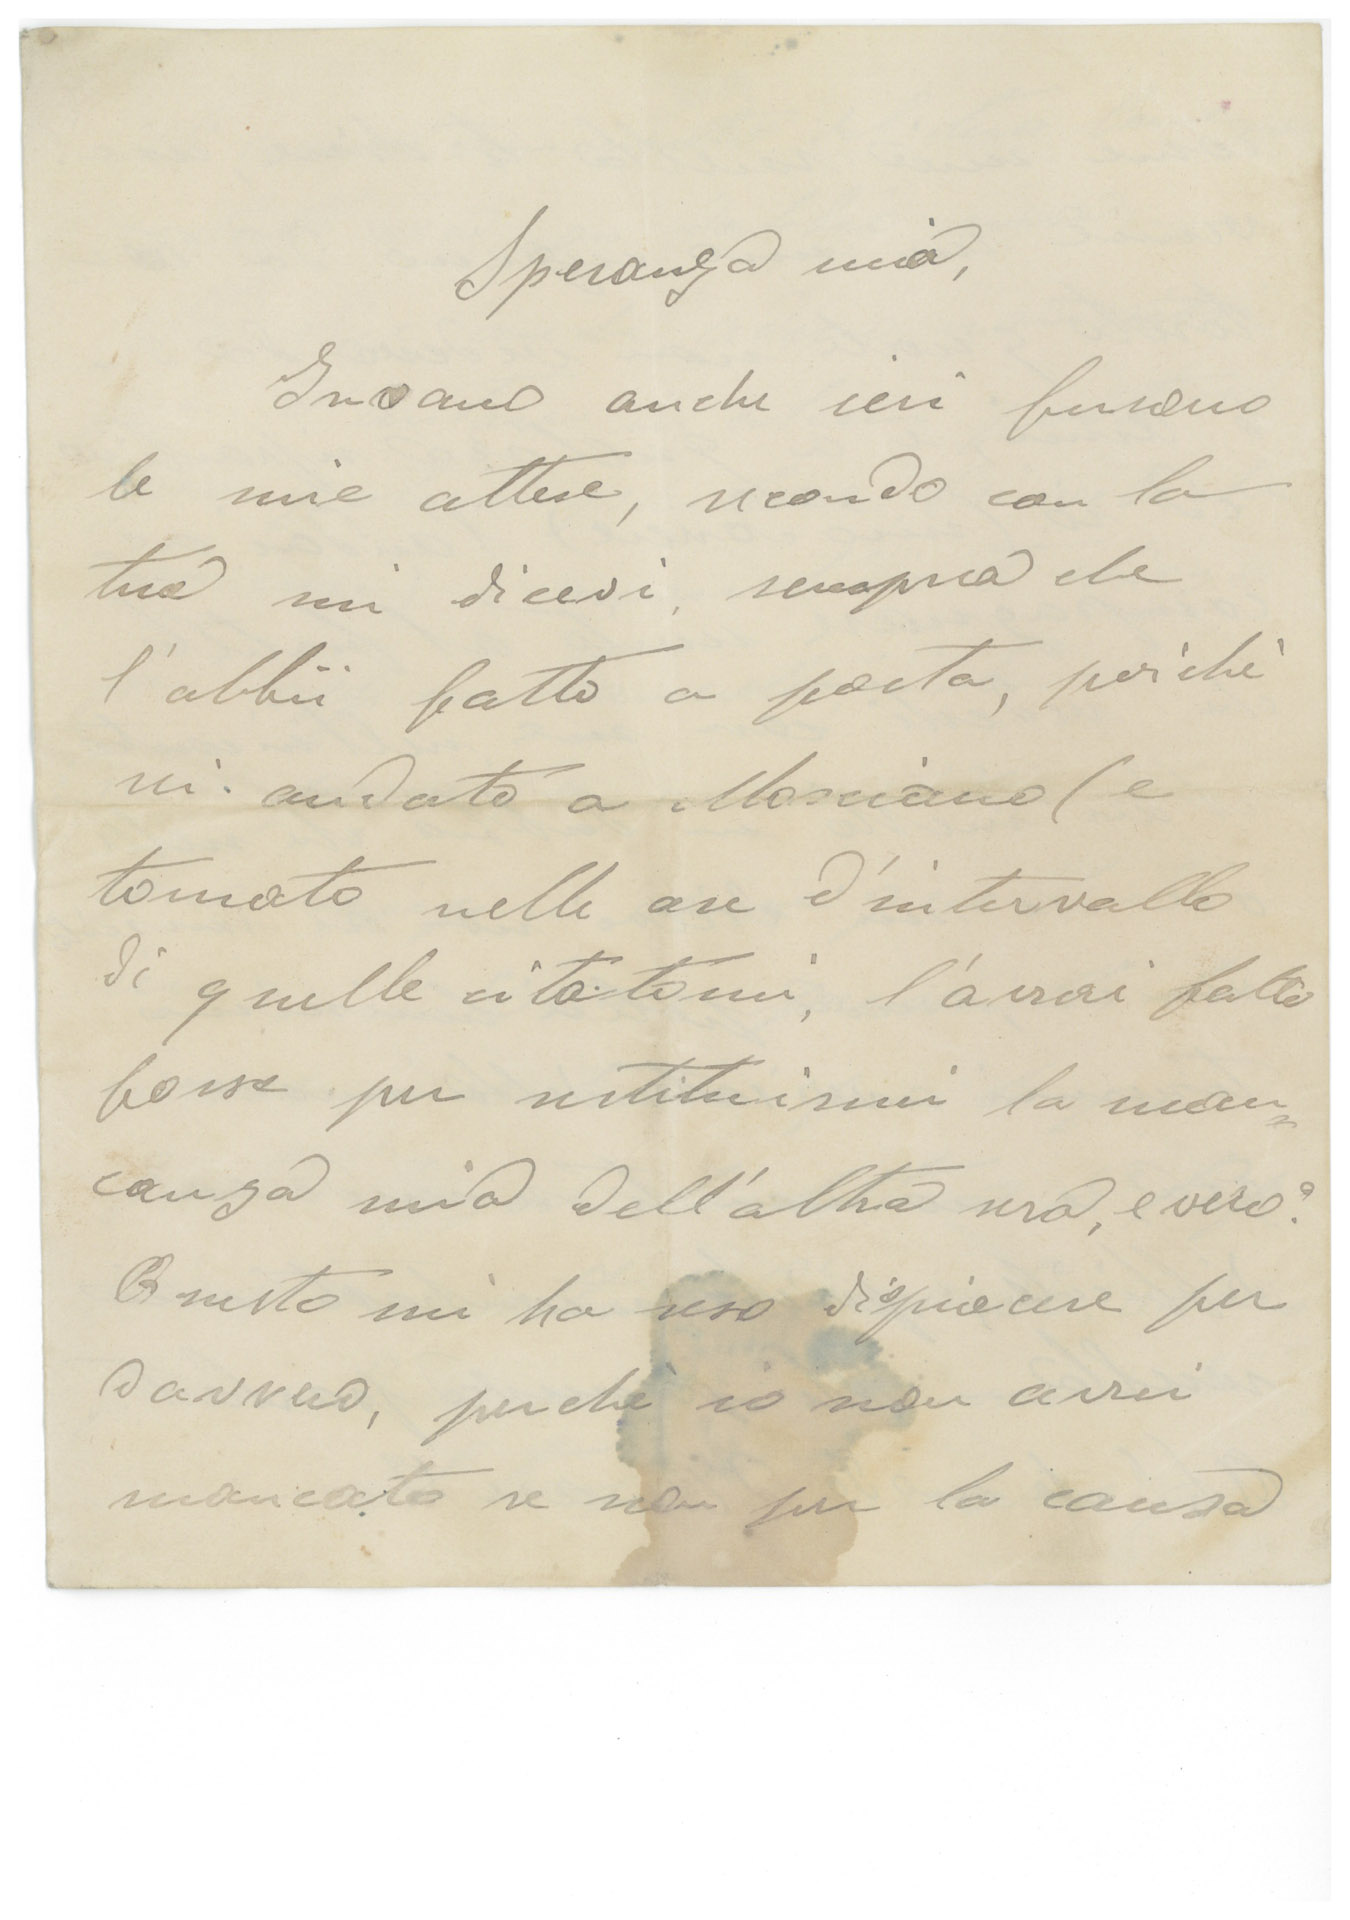 Speranza mia,
Invano anche ieri furono
le mie attese, secondo con la
tua mi dicevi, sempreché
l'abbii fatto a posta, poichè
sei andato a Mosciano (e
tornato nelle ore d'intervallo
di quelle citatomi, l'avrai fatto
forse per restituirmi la man-
canza mia dell'altra sera, e vero?
Questo mi ha reso dispiacere per
davvero, perchè io non avrei
mancato se non per la causa